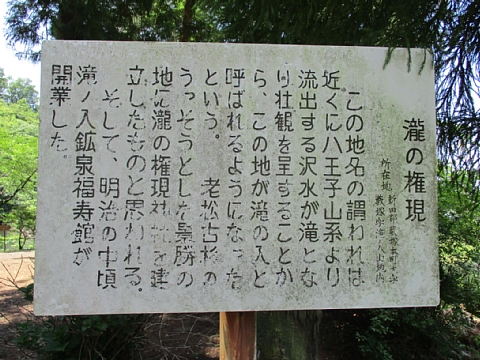 瀧の権現
所在地 新田郡藪塚本町大字
藪塚
この地名の謂われは
近くに八王子山系より
流出する沢水が滝とな
り壮観を呈することか
ら、この地が滝の入と
呼ばれるようになった
という。 老松古杉の
うっそうとした景勝の
地に瀧の権現社を建
立したものと思われる。
そして、明治の中頃
滝ノ入鉱泉福寿館が
開業した。